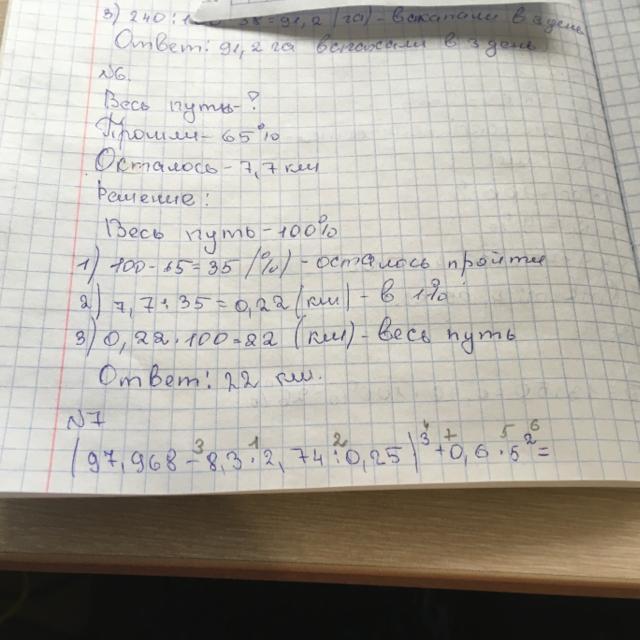 3) 240 : 100 · 38 = 91,2 (га) - вспахали в 3 день
Ответ: 91,2 га вспахали в 3 день
№6.
Весь путь - ?
Прошли - 65%
Осталось - 7,7 км
Решение:
Весь путь - 100%
1) 100 - 65 = 35 (%) - осталось пройти
2) 7,7 : 35 = 0,22 (км) - в 1%
3) 0,22 · 100 = 22 (км) - весь путь
Ответ: 22 км.
№7
3 1 2 4 7 5 6
(97,968 - 8,3 · 2,74 : 0,25)³ + 0,6 · 5² =